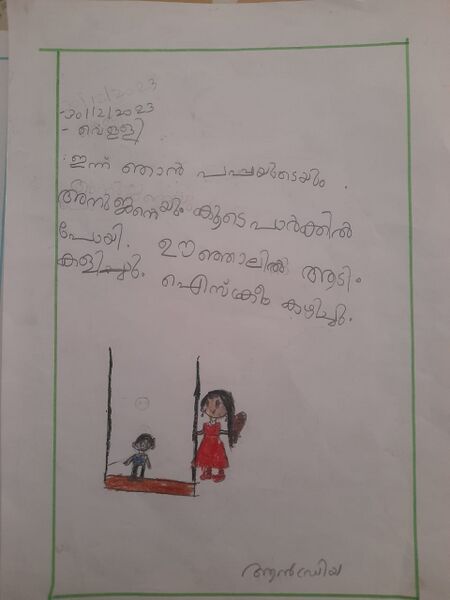 30/12/2023
- വെള്ളി
ഇന്ന് ഞാൻ പപ്പയുടെയും
അനുജൻ്റെയും കൂടെ പാർക്കിൽ
പോയി. ഊഞ്ഞാലിൽ ആടി
കളിച്ചു. ഐസ്ക്രീം കഴിച്ചു.
ആൻഡ്രിയ